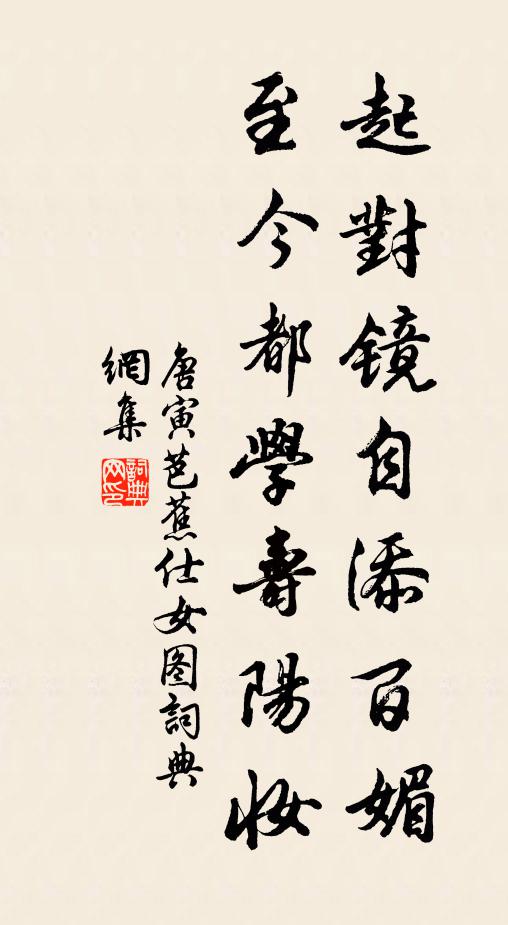 起對镜自添百媚
至今都學壽陽妝
唐寅芭蕉仕女图詞典
網集
詞典網印